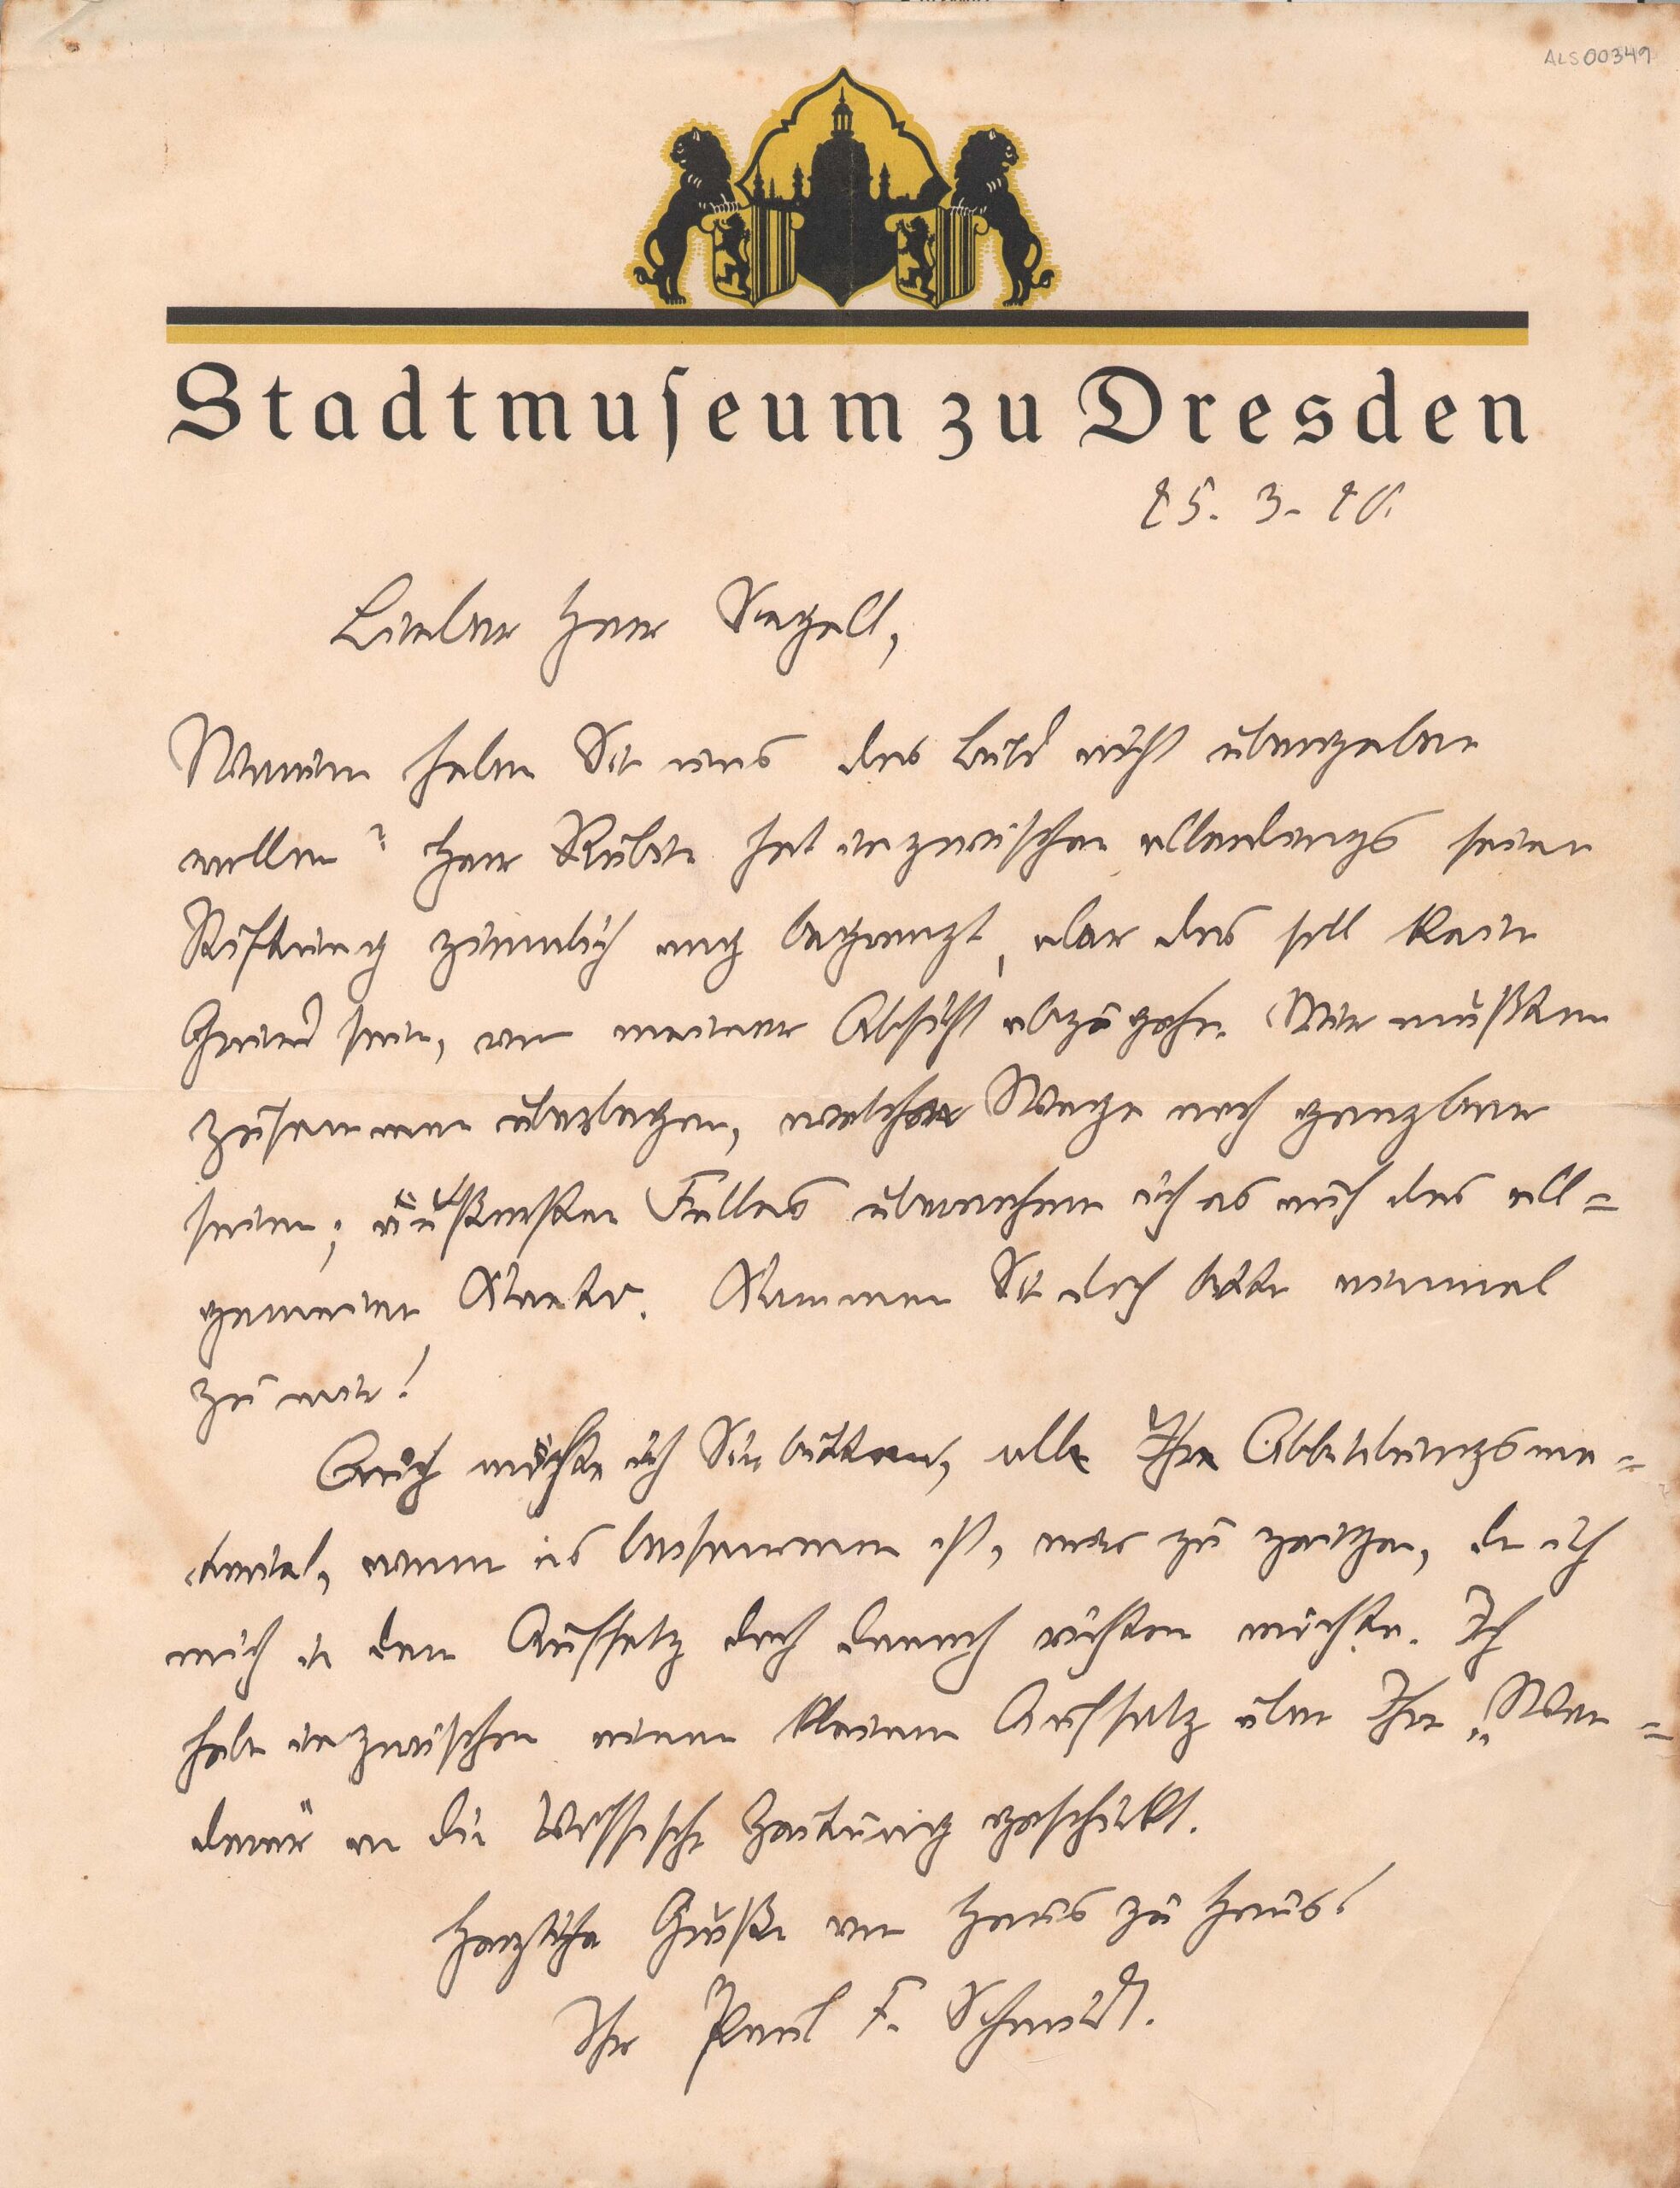 ALS00349
Stadtmuſeum zu Dresden
25. 3. 20.
Lieber Herr Segall,
Warum haben Sie uns das Bild nicht übergeben
wollen? Herr Rübe hat inzwischen allerdings seine
Stiftung ziemlich eng begrenzt, aber das soll kein
Grund sein, von meiner Absicht abzugehn. Wir müßten
zusammen überlegen, welche Wege noch gangbar
seien; äußersten Falles übernehme ich es auf das all=
gemeine Konto. Kommen Sie doch bitte einmal
zu mir!
Auch möchte ich Sie bitten, alle Ihre Abbildungsma=
terial, wenn es beisammen ist, mir zu zeigen, da ich
mich in dem Aufsatz doch danach richten möchte. Ich
habe inzwischen einen kleinen Aufsatz über Ihre „Wan=
derer" an die Vossische Zeitung geschickt.
Herzliche Grüße von Haus zu Haus!
Ihr Paul F. Schmidt.